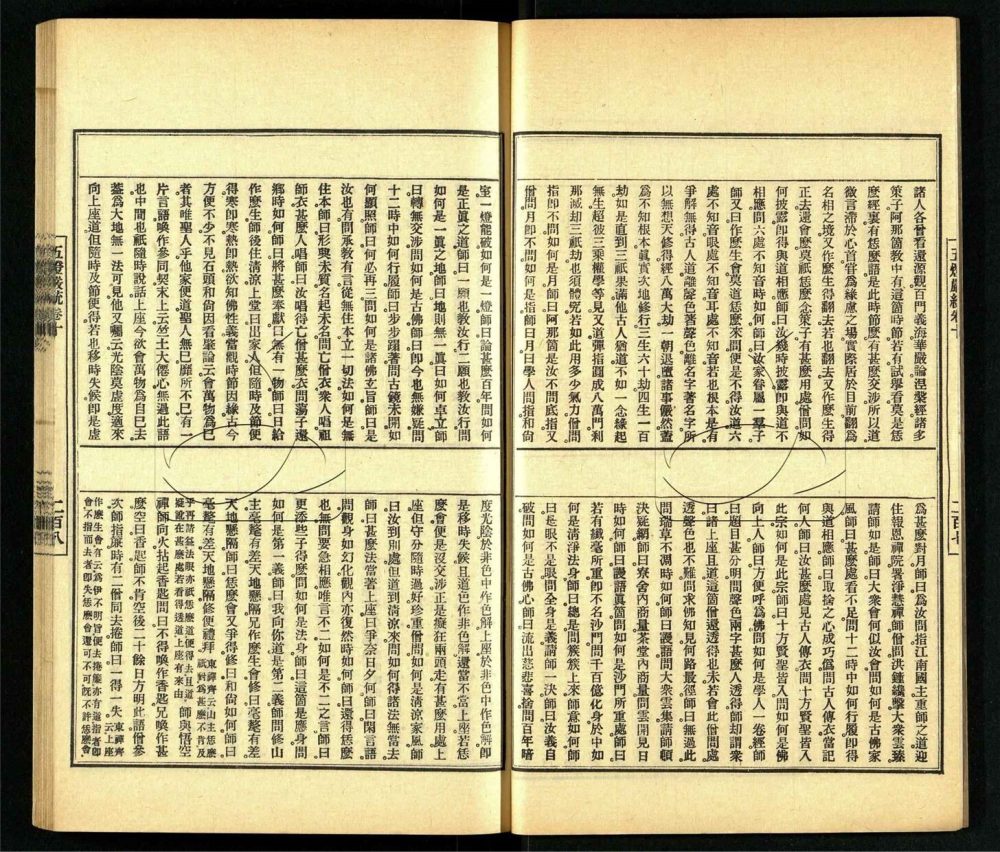 諸人各曾看還源觀百門義海華嚴論涅槃經諸多
策子阿那箇教中有這箇時節若有試舉看莫是恁
麼經裏有恁麼語是此時節麼有甚麼交涉所以道
微言滯於心首嘗為緣慮之場實際居於目前翻為
名相之境又作麼生得翻去若也翻去又作麼生得
正去還會麼莫祇恁麼念策子有甚麼用處僧問如
何披露即得與道相應師曰汝幾時披露即與道不
相應問六處不知音時如何師曰汝家眷屬一羣子
師又曰作麼生會莫道恁麼來問便是不得汝道六
處不知音眼處不知音耳處不知音若也根本是有
爭解無得古人道離聲色著聲色離名字著名字所
以無想天修得經八萬大劫一朝退墮諸事儼然蓋
為不知根本真實次地修行三生六十劫四生一百
劫如是直到三祇果滿他古人猶道不如一念緣起
無生超彼三乘權學等見又道彈指圓成八萬門剎
那滅却三祇劫也須體究若如此用多少氣力僧問
指即不問如何是月師曰阿那箇是汝不問底指又
僧問月即不問如何是指師曰月曰學人問指和尚
為甚麼對月師曰為汝問指江南國主重師之道迎
住報恩禪院署淨慧禪師僧問洪鐘纔擊大衆雲臻
請師如是師曰大衆會何似汝會問如何是古佛家
風師曰甚麼處看不足問十二時中如何行履即得
與道相應師曰取捨之心成巧僞問古人傳衣當記
何人師曰汝甚麼處見古人傳衣問十方賢聖皆入
此宗如何是此宗師曰十方賢聖皆入問如何是佛
向上人師曰方便呼為佛問如何是學人一卷經師
曰題目甚分明問聲色兩字甚麼人透得師却謂衆
曰諸上座且道這箇僧還透得也未若會此僧問處
透聲色也不難問求佛知見何路最徑師曰無過此
問瑞草不凋時如何師曰謾語問大衆雲集請師頓
決疑網師曰寮舍內商量茶堂內商量問雲開見日
時如何師曰謾語真箇問如何是沙門所重處師曰
若有纖毫所重即不名沙門問千百億化身於中如
何是清淨法身師曰總是問簇簇上來師意如何師
曰是眼不是眼問全身是義請師一決師曰汝義自
破問如何是古佛心師曰流出慈悲喜捨問百年暗
室一燈能破如何是一燈師曰論甚麼百年問如何
是正真之道師曰一願也教汝行二願也教汝行問
如何是一真之地師曰地則無一真曰如何卓立師
曰轉無交涉問如何是古佛師曰即今也無嫌疑問
十二時中如何行履師曰步步蹋著問古鏡未開如
何顯照師曰何必再三問如何是諸佛玄旨師曰是
汝也有問承教有言從無住本立一切法如何是無
住本師曰形與未質名起未名問亡僧衣衆人唱祖
師衣甚麼人唱師曰汝唱得亡僧甚麼衣問蕩子還
鄉時如何師曰將甚麼奉獻曰無有一物師曰日給
作麼生師後住清涼上堂曰出家人但隨時及節便
得寒即寒熱即熱欲知佛性義當觀時節因緣古今
方便不少不見石頭和尚因看肇論云會萬物為己
者其唯聖人乎他家便道聖人無己靡所不己有一
片言語喚作參同契末上云竺土大僊心無過此語
也中間也祇隨時說話上座今欲會萬物為自己去
蓋為大地無一法可見他又囑云光陰莫虛度適來
向上座道但隨時及節便得若也移時失候即是虛
度光陰於非色中作色解上座於非色中作色解即
是移時失候且道色作非色解還當不當上座若恁
麼會便是沒交涉正是癡狂兩頭走有甚麼用處上
座但守分隨時過好珍重僧問如何是清涼家風師
曰汝到別處但道到清涼來問如何得諸法無當去
師曰甚麼法當著上座曰爭奈日夕何師曰閑言語
問觀身如幻化觀內亦復然時如何師曰還得恁麼
也無問要急相應唯言不二如何是不二之言師曰
更添些子得麼問如何是法身師曰這箇是應身問
如何是第一義師曰我向你道是第二義師問修山
主毫釐有差天地懸隔兄作麼生會修曰毫釐有差
天地懸隔師曰恁麼會又爭得修曰和尚如何師曰
毫釐有差天地懸隔修便禮拜東禪齊云山主恁麼祇對為甚麼不肯及
乎再請益法眼亦祇恁麼道便得去且道疑訛在甚麼處若看得透道上座有來由師與悟空
禪師向火拈起香匙問曰不得喚作香匙兄喚作甚
麼空曰香匙師不肯空後二十餘日方明此語僧參
次師指簾時有二僧同去捲師曰一得一失東禪齊云上座
作麼生會有云為伊不明旨便去捲簾亦有道指者即
會不指而去者即失恁麼會還可不可既不許恁麼會
五燈嚴統卷十
二百八
五燈嚴統卷十
二百七